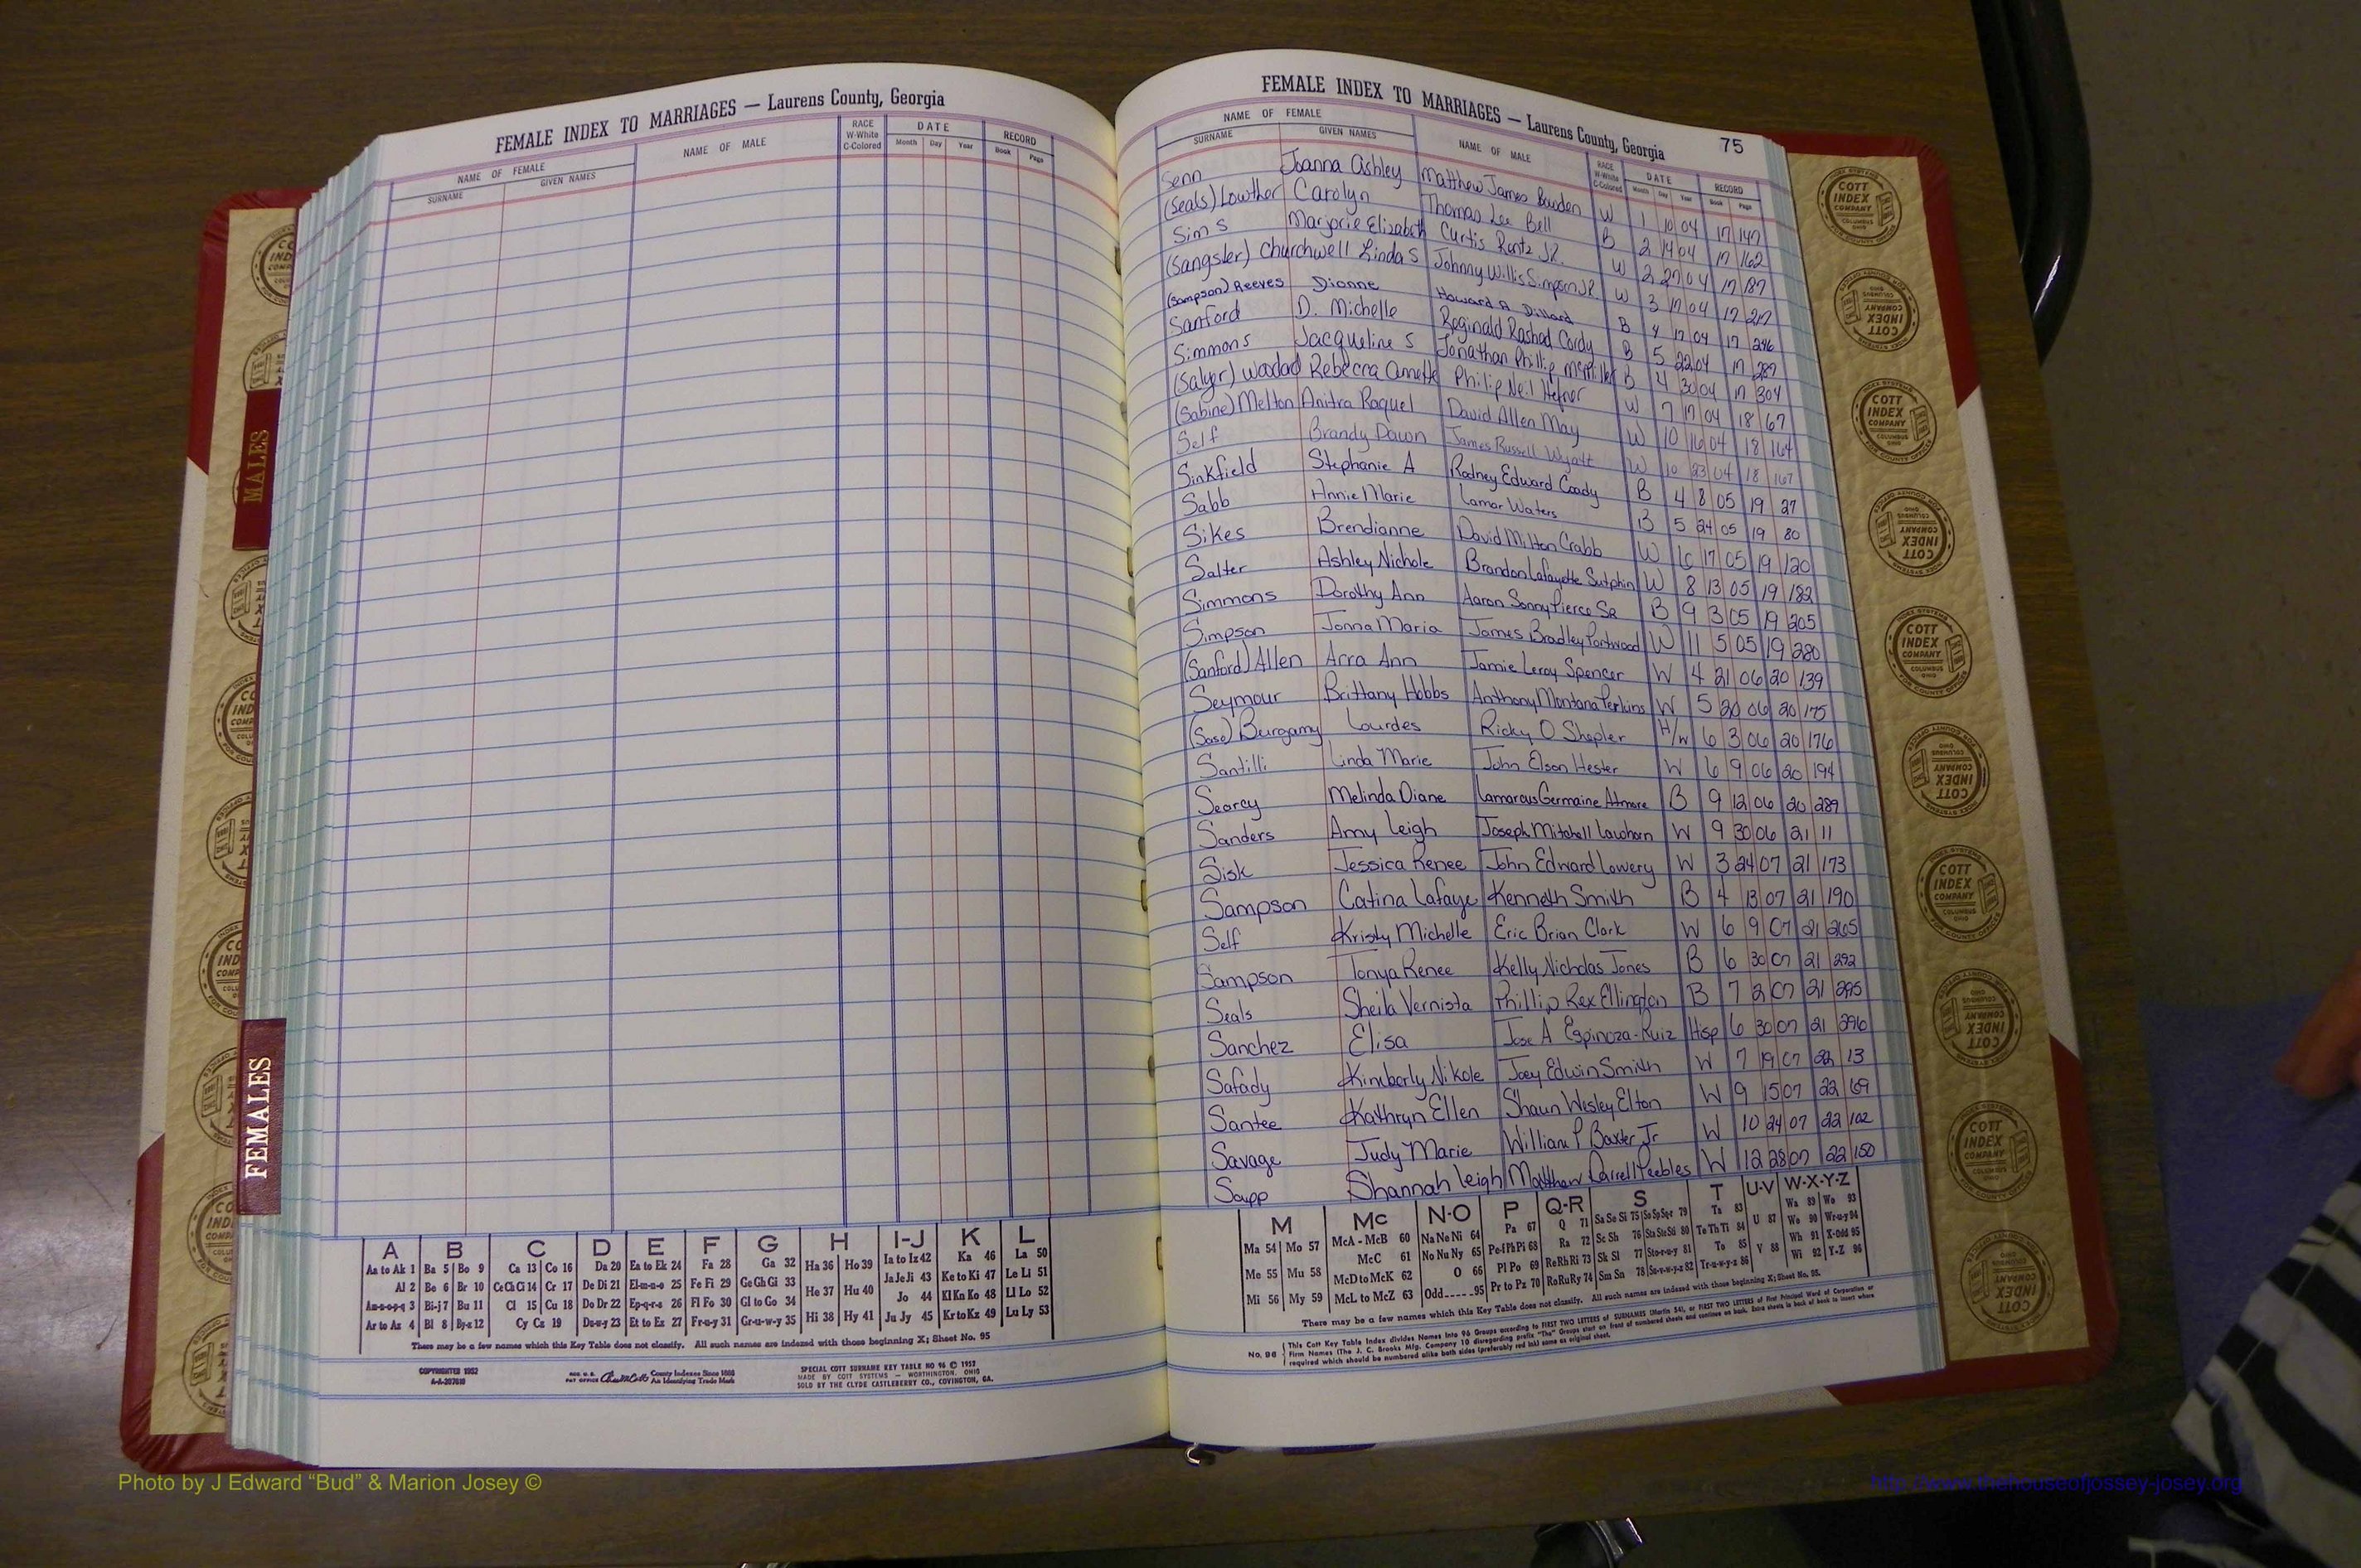 FEMALE INDEX TO MARRIAGES — Laurens County, Georgia
NAME OF FEMALE NAME OF MALE RACE W-White C-Colored DATE RECORD
SURNAME GIVEN NAMES Month Day Year Book Page
FEMALE INDEX TO MARRIAGES — Laurens County, Georgia 75
NAME OF FEMALE NAME OF MALE RACE W-White C-Colored DATE RECORD
SURNAME GIVEN NAMES Month Day Year Book Page
Senn Joanna Ashley Matthew James Bowden W 1 10 04 17 147
(Seals) Lowther Carolyn Thomas Lee Bell B 2 14 04 17 162
Sims Marjorie Elizabeth Curtis Rentz Jr. W 2 27 04 17 187
(Sangster) Churchwell Linda S Johnny Willis Simpson Jr. W 3 17 04 17 217
(Sampson) Reeves Dianne Howard A Dillard B 4 17 04 17 246
Sanford D. Michelle Reginald Rashad Cordy B 5 22 04 17 289
Simmons Jacqueline S Jonathan Phillip B 4 30 04 17 304
(Salyer) Rebecca Annette Philip Neil Hefner W 7 17 04 18 67
(Sabine) Melton Anitra Raquel David Allen May W 10 16 04 18 164
Self Brandy Dawn James Russell Wyatt W 10 23 04 18 167
Sinkfield Stephanie A Rodney Edward Coody B 4 8 05 19 27
Sabb Annie Marie Lamar Waters B 5 24 05 19 80
Sikes Brendianne David Milton Crabb W 6 17 05 19 120
Salter Ashley Nichole Brandon Lafayette Sutphin W 8 13 05 19 182
Simmons Dorothy Ann Aaron Sonny Pierce Sr B 9 3 05 19 205
Simpson Jonna Maria James Bradley Portwood W 11 5 05 19 280
(Sanford) Allen Arra Ann Jamie Leroy Spencer W 4 21 06 20 139
Seymour Brittany Hobbs Anthony Montana Perkins W 5 20 06 20 175
(Sase) Burgamy Lourdes Ricky O Shepler H/W 6 3 06 20 176
Santilli Linda Marie John Elson Hester W 6 9 06 20 194
Searcy Melinda Diane Lamarcus Germaine Atmore B 9 12 06 20 289
Sanders Amy Leigh Joseph Mitchell Lawhorn W 9 30 06 21 11
Sisk Jessica Renee John Edward Lowery W 3 24 07 21 173
Sampson Catina Lafaye Kenneth Smith B 4 13 07 21 190
Self Kristy Michelle Eric Brian Clark W 6 9 07 21 265
Sampson Tonya Renee Kelly Nicholas Jones B 6 30 07 21 292
Seals Sheila Vernista Phillip Rex Ellington B 7 2 07 21 295
Sanchez Elisa Jose A Espinoza-Ruiz Hsp 6 30 07 21 296
Safady Kimberly Nikole Joey Edwin Smith W 7 19 07 22 13
Santee Kathryn Ellen Shaun Wesley Elton W 9 15 07 22 69
Savage Judy Marie William P Baxter Jr W 10 24 07 22 102
Sapp Shannah Leigh Matthew Darrell Peebles W 12 28 07 22 150
MALES
FEMALES
A B C D E F G H I-J K L
Aa to Ak 1 Ba 5 Bo 9 Ca 13 Co 16 Da 20 Ea to Ek 24 Fa 28 Ga 32 Ha 36 Ho 39 Ia to Iz 42 Ka 46 La 50
Al 2 Be 6 Br 10 Ce Ch Ci 14 Cr 17 De Di 21 El-m-n-o 25 Fe Fi 29 Ge Gh Gi 33 He 37 Hu 40 Ja Je Ji 43 Ke to Ki 47 Le Li 51
Am-n-o-p-q 3 Bi-j 7 Bu 11 Cl 15 Cu 18 Do Dr 22 Ep-q-r-s 26 Fl Fo 30 Gl to Go 34 Hi 38 Hy 41 Jo 44 Kl Kn Ko 48 Ll Lo 52
Ar to Az 4 Bl 8 By-z 12 Cy Cz 19 Du-w-y 23 Et to Ez 27 Fr-u-y 31 Gr-u-w-y 35 Ju Jy 45 Kr to Kz 49 Lu Ly 53
There may be a few names which this Key Table does not classify. All such names are indexed with those beginning X; Sheet No. 95
COPYRIGHTED 1952
A-A-207610
REG. U.S. PAT OFFICE County Indexes Since 1888 An Identifying Trade Mark
SPECIAL COTT SURNAME KEY TABLE NO 96 © 1952
MADE BY COTT SYSTEMS — WORTHINGTON, OHIO
SOLD BY THE CLYDE CASTLEBERRY CO., COVINGTON, GA.
M Mc N-O P Q-R S T U-V W-X-Y-Z
Ma 54 Mo 57 McA - McB 60 Na Ne Ni 64 Pa 67 Q 71 Sa Se Si 75 So Sp Sq-r 79 Ta 83 U 87 Wa 89 Wo 93
Me 55 Mu 58 McC 61 No Nu Ny 65 Pe-f Ph Pi 68 Ra 72 Sc Sh 76 Sta Ste Sti 80 Te Th Ti 84 V 88 We 90 Wr-u-y 94
Mi 56 My 59 McD to McK 62 O 66 Pl Po 69 Re Rh Ri 73 Sk Sl 77 Sto-r-u-y 81 To 85 Wh 91 X-Odd 95
McL to McZ 63 Odd 95 Pr to Pz 70 Ro Ru Ry 74 Sm Sn 78 Su-v-w-y-z 82 Tr-u-w-y-z 86 Wi 92 Y-Z 96
There may be a few names which this Key Table does not classify. All such names are indexed with those beginning X; Sheet No. 95.
No. 96 This Cott Key Table Index divides Names into 96 Groups according to FIRST TWO LETTERS of SURNAMES (Martin 54), or FIRST TWO LETTERS of First Principal Word of Corporation or
Firm Names (The J. C. Brooks Mfg. Company 10 disregarding prefix "The" Groups start on front of numbered sheets and continue on back. Extra sheets in back of book to insert where
required which should be numbered alike both sides (preferably red ink) same as original sheet.
COTT INDEX COMPANY
Photo by J Edward "Bud" & Marion Josey ©
http://www.thehouseofjossey-josey.org